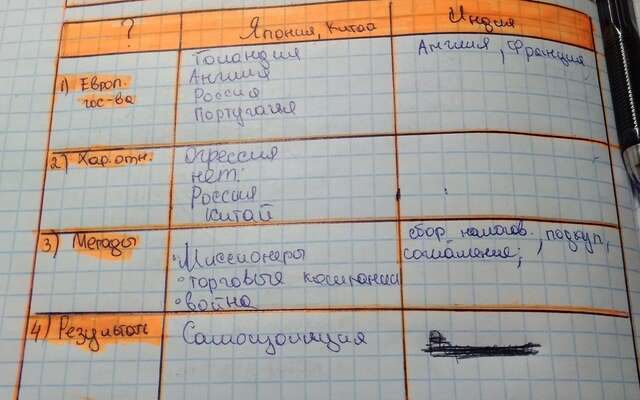 ?
Япония, Китай
Индия
1) Европ.
гос-ва
Голандия
Англия
Россия
Португалия
Англия, Франция
2) Хар. отн.
Огрессия
нет.
Россия
Китай
3) Методы
• Миссионеры
• торговые компании
• война
сбор налогов, подкуп,
соглашения;
4) Результаты
Самоизоляция